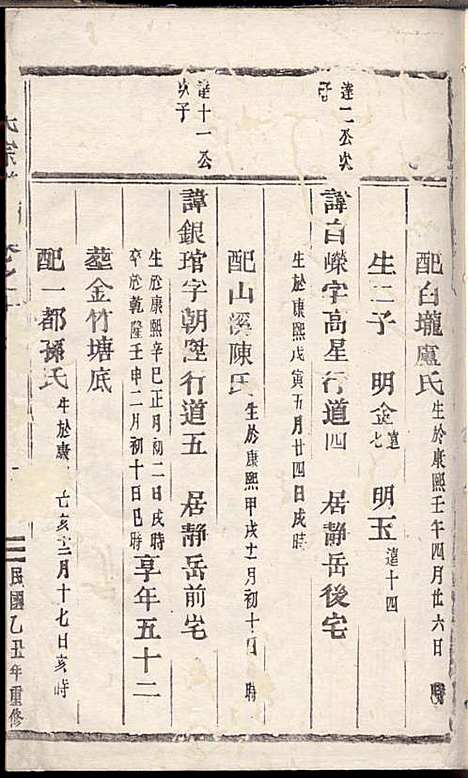 配白壠盧氏 生於康熙壬午四月廿六日 時
生二子 明金 達七 明玉 達十四
達二公次子
諱白嶸字高星行道四 居静岳後宅
生於康熙戊寅五月廿四日戌時
配山溪陳氏 生於康熙甲戌十一月初十 時
達十一公次子
諱銀琯字朝陞行道五 居静岳前宅
生於康熙辛巳正月初二日戌時
卒於乾隆壬申二月初十日巳時 享年五十二
塟金竹塘底
配一都孫氏 生於康 亥十二月十七日亥時
民國乙丑年重修